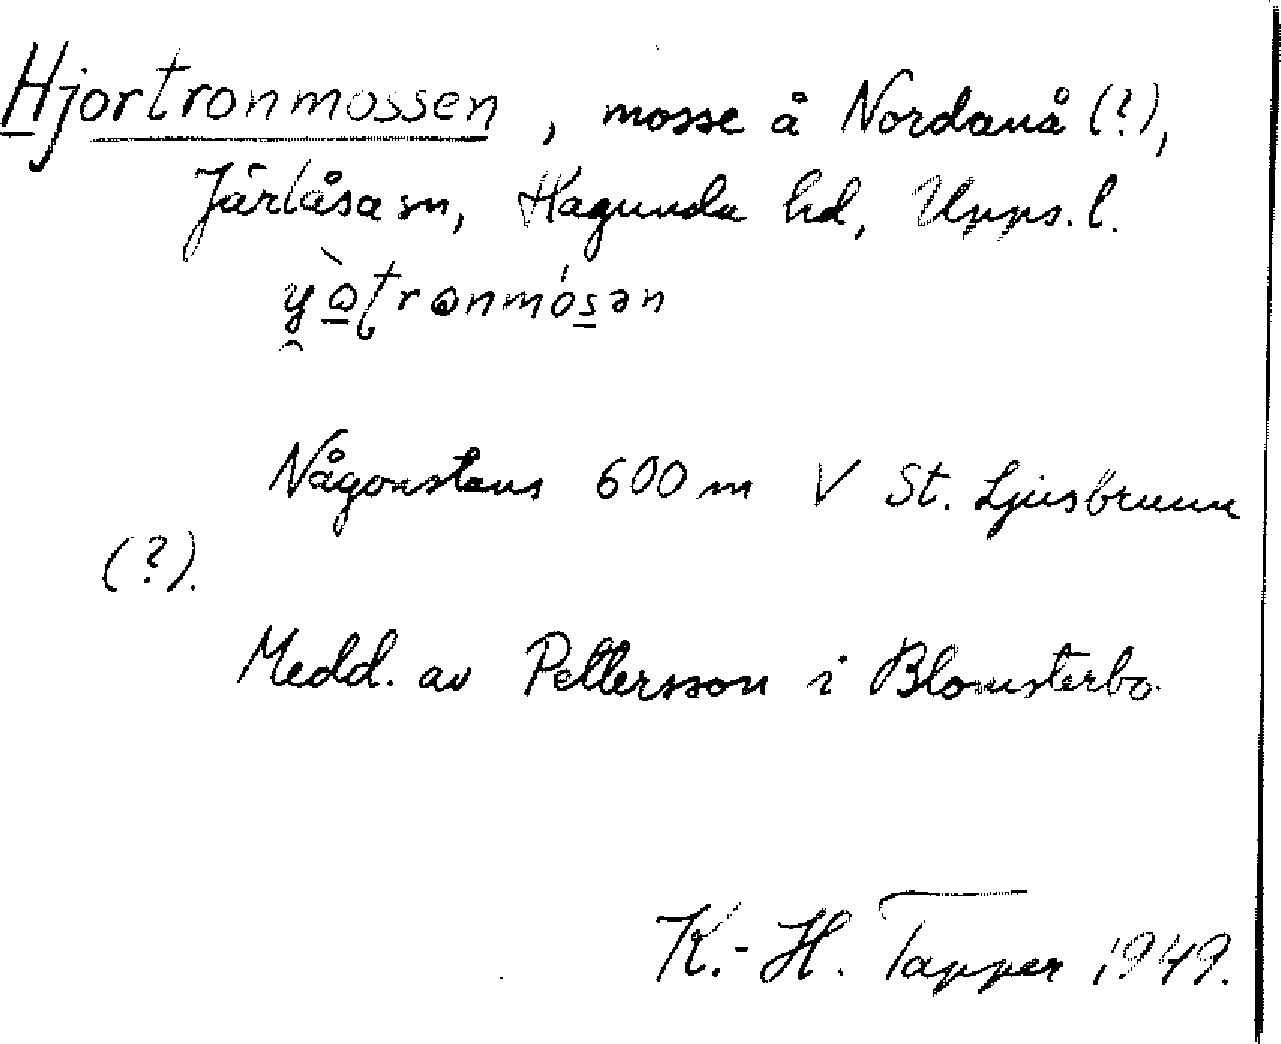 Hjortronmossen, mosse å Nordanå (?),
Järlåsa sn, Hagunda hd, Upps. l.
Någonstans 600 m V St. Ljusbrunn
(?).
Medd. av Pettersson i Blomsterbo.
K.-H. Tapper 1949.